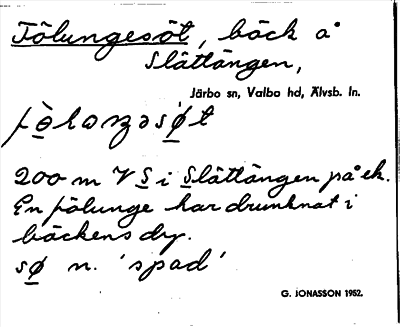 Fölungesöt, bäck å
Slättängen,
Järbo sn, Valbo hd, Älvsb. ln.
200 m V S i Slättängen på ek.
En fölunge har drunknat i
bäckens dy.
sø n. 'spad'
G. JONASSON 1952.